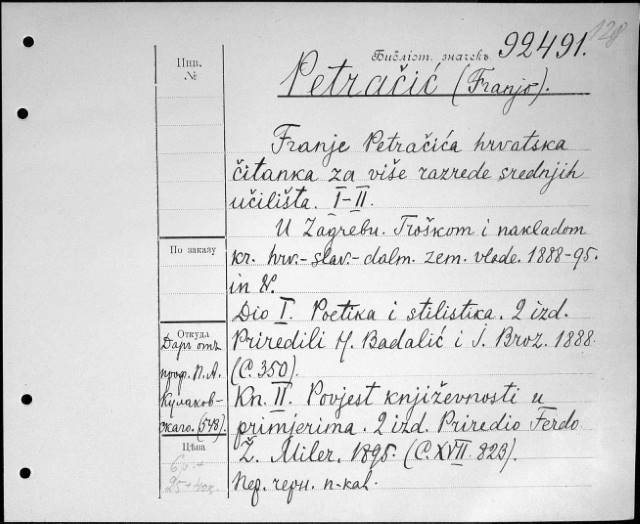 128
Библіот. значекъ 92491.
Инв.
№
Petračić (Franjo).
Franje Petračića hrvatska
čitanka za više razrede srednjih
učilišta. I-II.
U Zagrebu. Troškom i nakladom
По заказу
kr. hrv.- slav.- dalm. zem. vlade. 1888-95.
in 8°.
Dio I. Poetika i stilistika. 2 izd.
Откуда
Priredili H. Badalić i I. Broz. 1888.
(С. 350).
Даръ отъ
проф. П. А.
Кулаков-
скаго. (548).
Kn. II. Povjest književnosti u
primjerima. 2 izd. Priredio Ferdo
Цѣна
Ž. Miler. 1895. (С. XVII. 823).
25